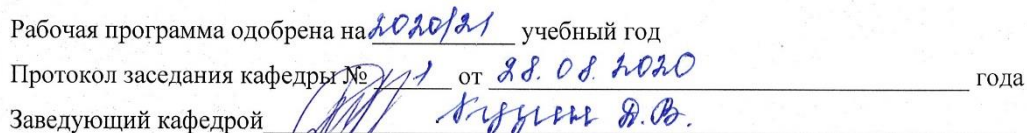 Рабочая программа одобрена на 2020/21 учебный год
Протокол заседания кафедры № 1 от 28.08.2020 года
Заведующий кафедрой Д.В.